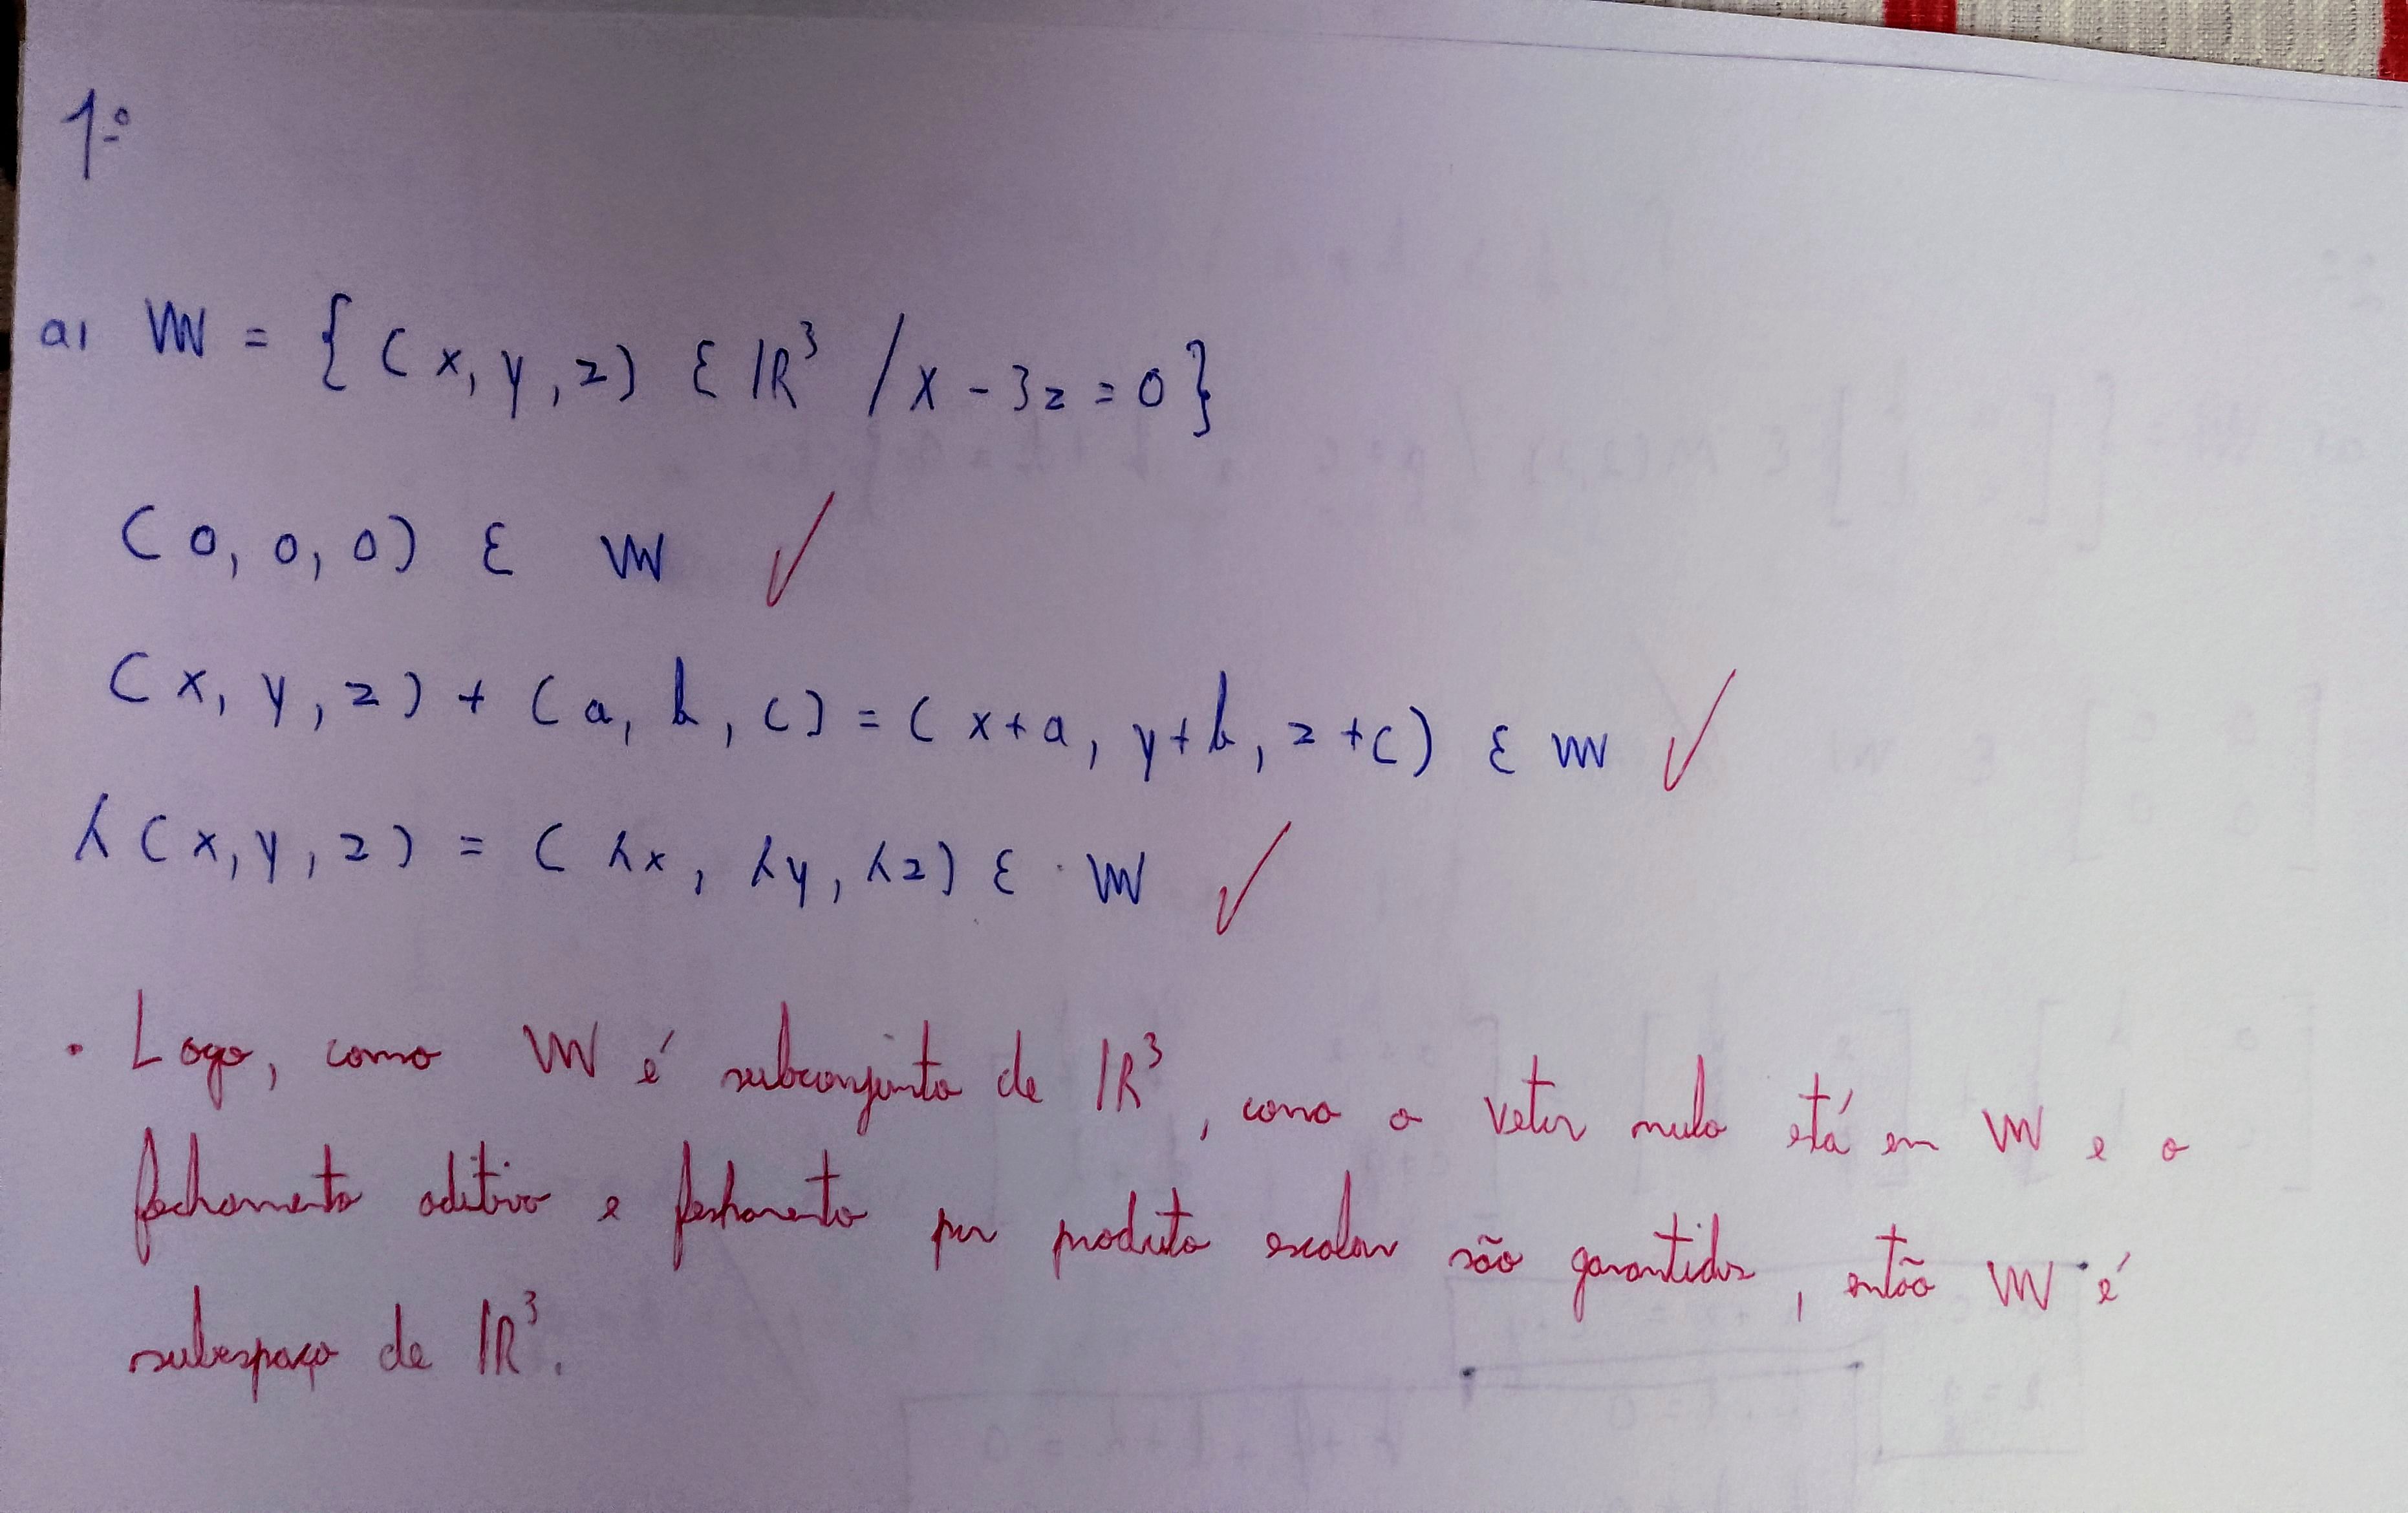 1º
a) W = { (x, y, z) ∈ IR³ / x - 3z = 0 }
(0, 0, 0) ∈ W ✓
(x, y, z) + (a, b, c) = (x+a, y+b, z+c) ∈ W ✓
λ(x, y, z) = (λx, λy, λz) ∈ W ✓
• Logo, como W é subconjunto de IR³, como o vetor nulo está em W e o
fechamento aditivo e fechamento por produto escalar são garantidos, então W é
subespaço de IR³.